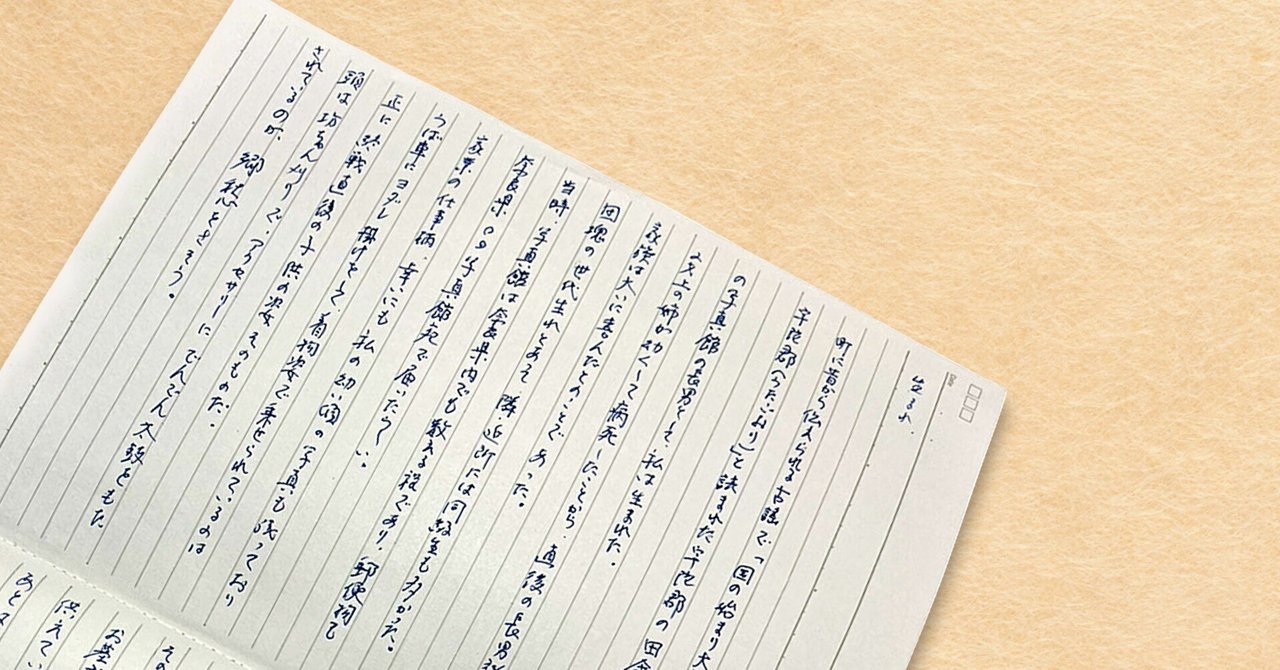 生まれ
町に昔から伝えられる古謡で「国の始まり大
宇陀郡へうたごおり」と読まれた宇陀郡の田舎
の写真館の長男として、私は生まれた。
文上の姉が幼くして病死したことから、直後の長男
家族は大いに喜んだとのことであった。
団塊の世代生れとあって隣近所には同級生も多かった。
当時、写真館は奈良県内でも数える程であり、郵便物も
奈良県〇〇写真館宛で届いたらしい。
家業の仕事柄、幸いにも私の幼い頃の写真も残っており
うば車にヨダレ掛けをして、着物姿で乗せられているのは
正に終戦直後の子供の姿そのものだ。
頭は坊ちゃん刈りで、アクセサリーにでんでん太鼓をもた
されているのが、郷愁をさそう。
その
お墓
供えてい
あとは